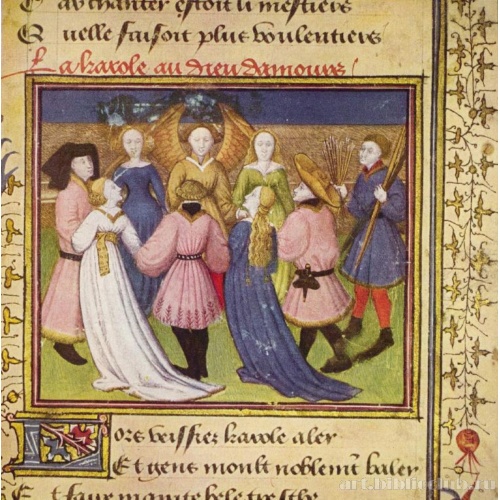 au chanter estoit li mestiers
Quelle faisoit plus voulentiers
La karole au dieu damours
Lors veissiez karole aler
Et gens moult noblemt baler
Et faire mainte bele tresche
art.biblioclub.ru